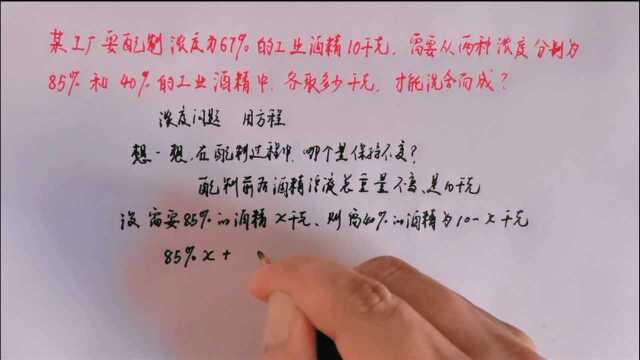 某工厂要配制浓度为67%的工业酒精10千克，需要从两种浓度分别为
85%和40%的工业酒精中，各取多少千克，才能混合而成？
浓度问题 用方程
想一想，在配制过程中，哪个量保持不变？
配制前后酒精溶液总重量不变，是10千克
设需要85%的酒精x千克、则需40%的酒精为10-x千克
85%x+